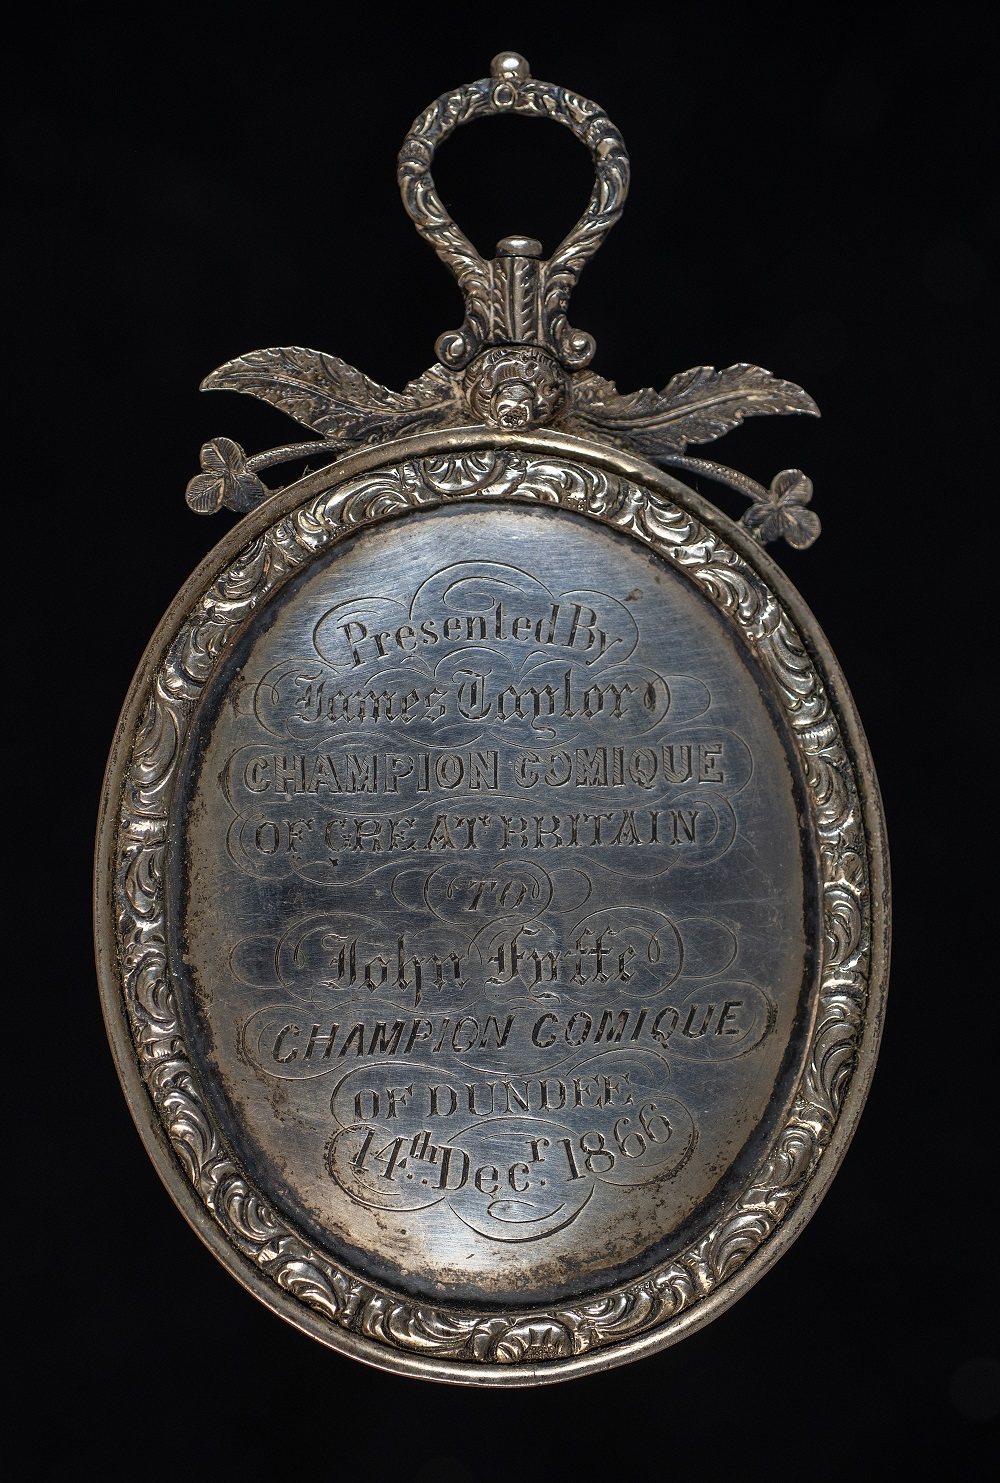 Presented By
James Taylor
CHAMPION COMIQUE
OF GREAT BRITAIN
TO
John Fyffe
CHAMPION COMIQUE
OF DUNDEE
14th Decr. 1866